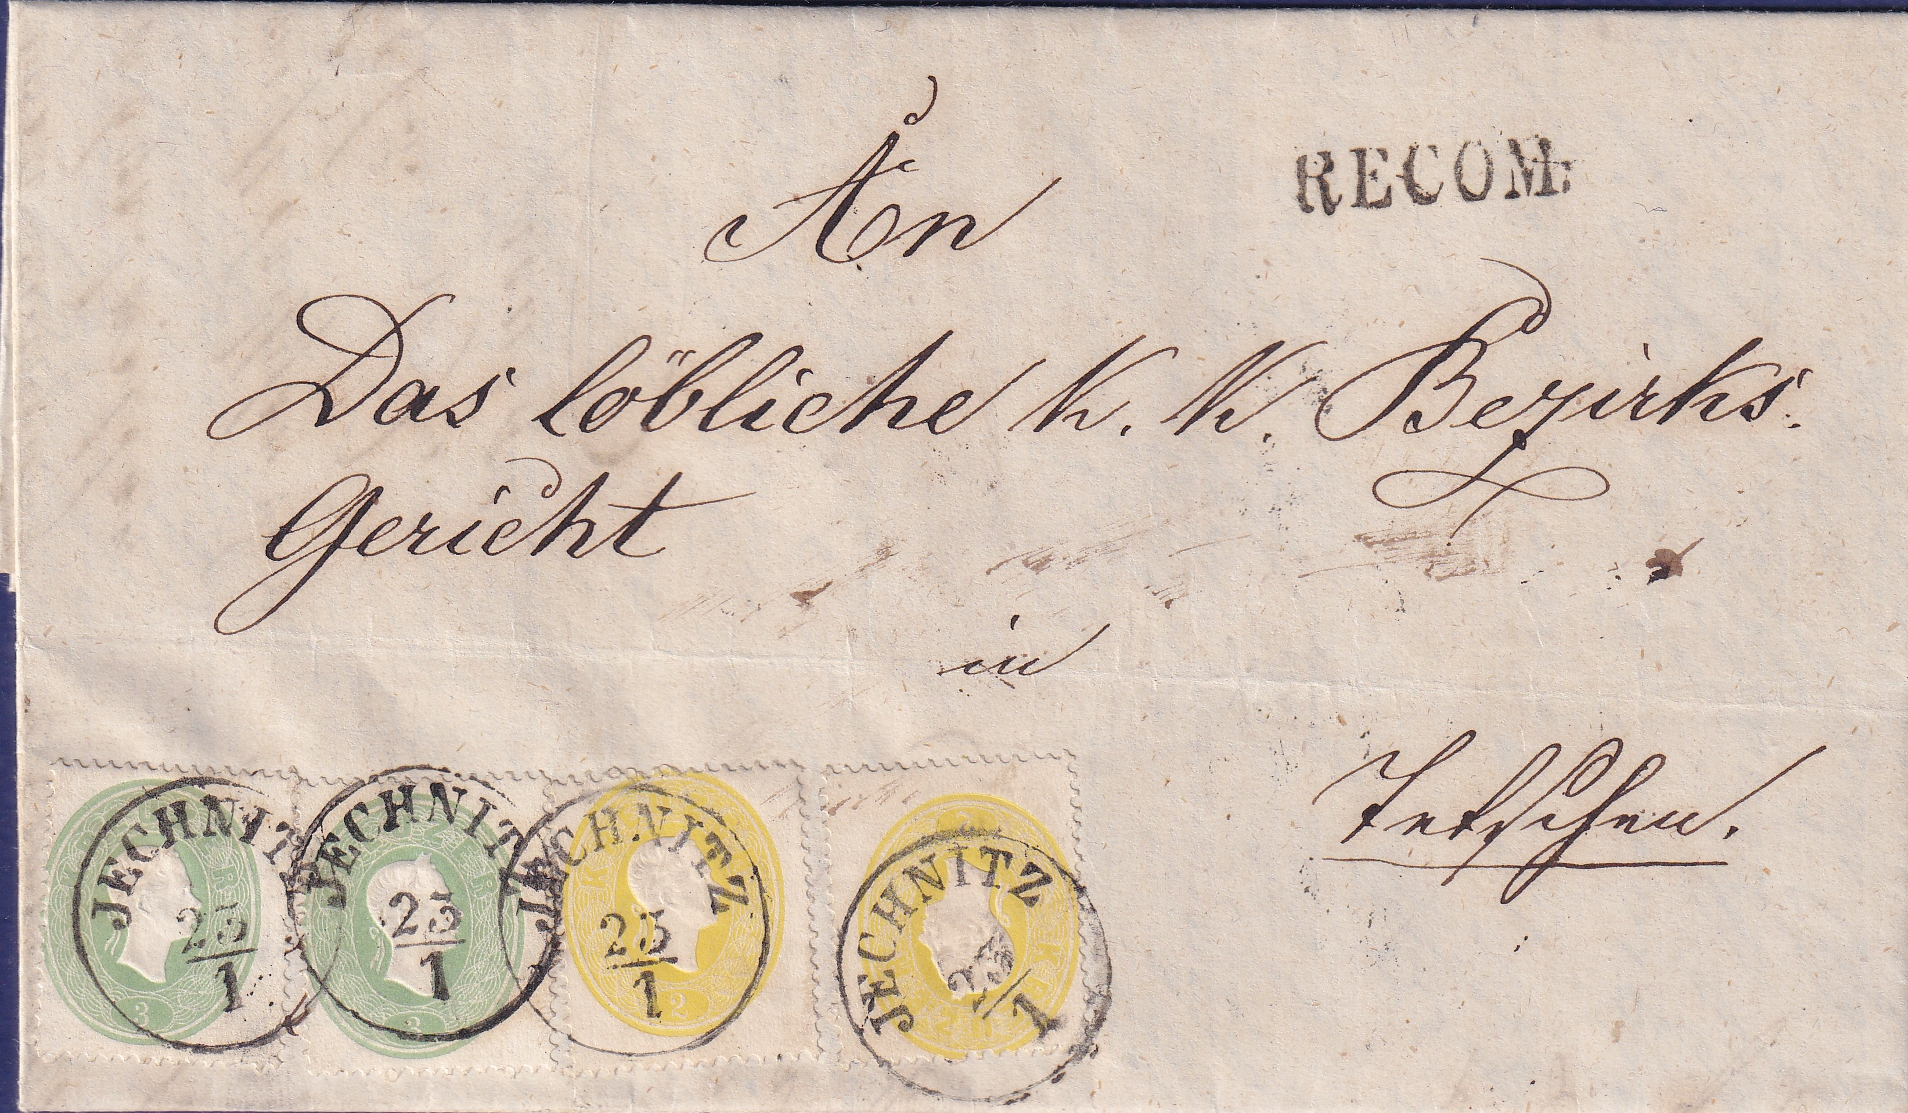 An
RECOM:
Das löbliche k. k. Bezirks.
Gericht
in
Tetschen.
JECHNITZ
23
1
3
JECHNITZ
23
1
3
JECH.NITZ
23
1
2
JECHNITZ
23
1